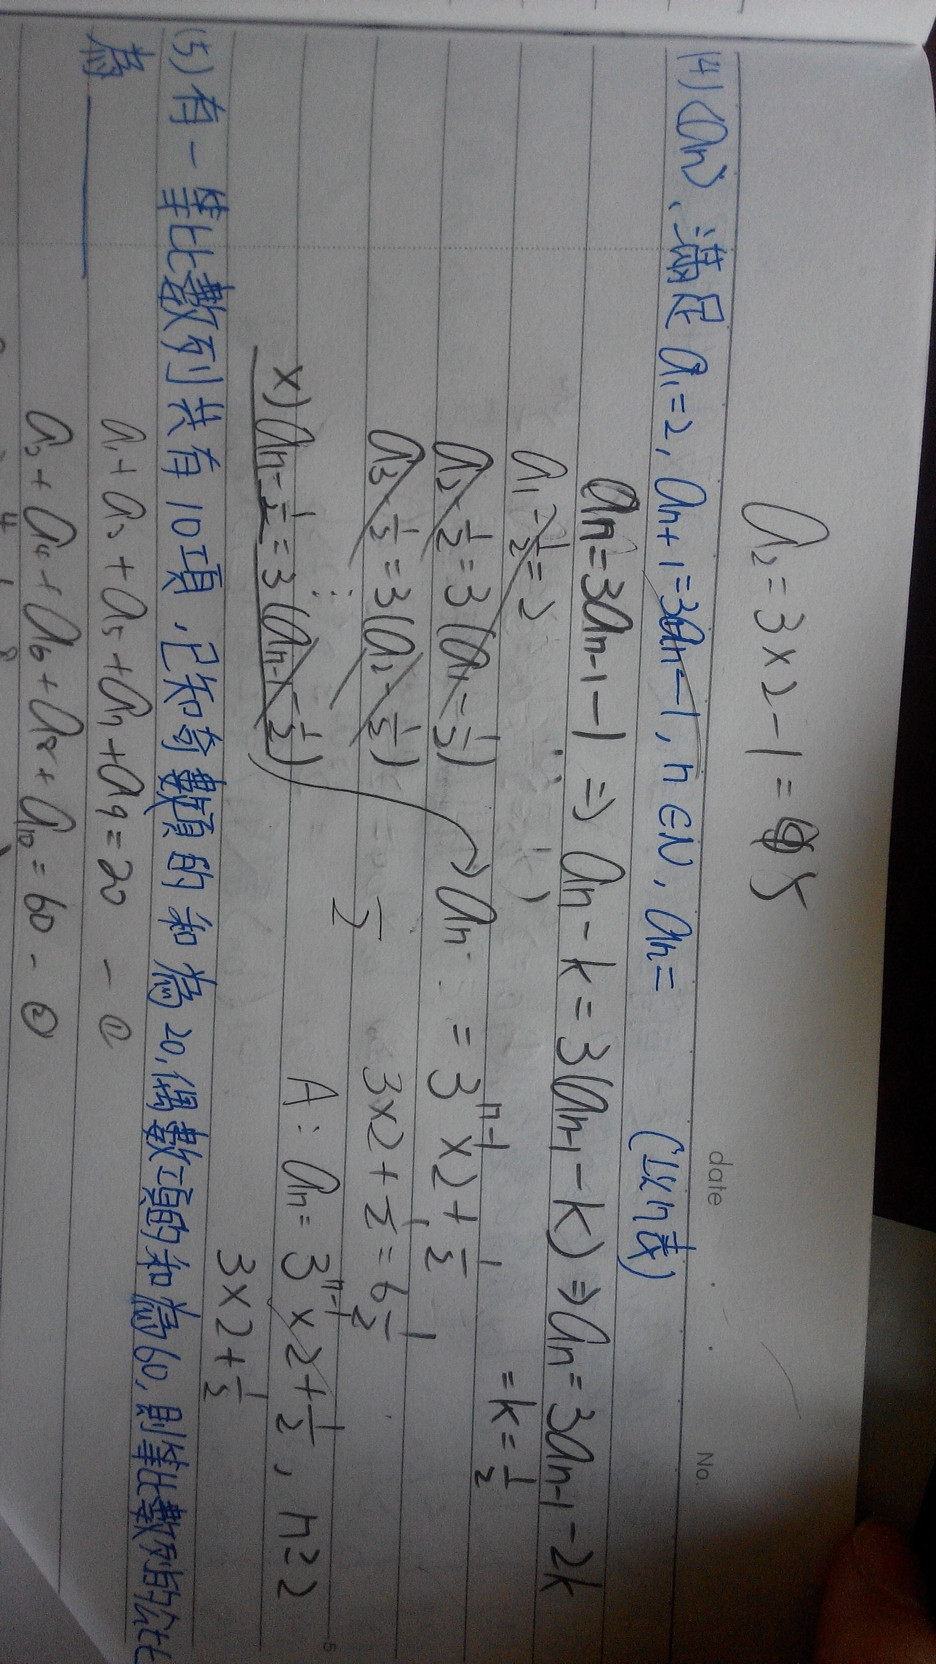 date
No.
a₂=3×2-1=5
(4)〈an〉、滿足a₁=2, an+1=3an-1, n∈N, an= (以n表)
an=3an-1-1 ⇒ an-k=3(an-1-k) ⇒ an=3an-1-2k
a₁-1/2=2
=k=1/2
a₂-1/2=3(a₁-1/2)
an=3ⁿ⁻¹×2+1/2
a₃-1/2=3(a₂-1/2)
3×2+1/2=6 1/2
⋮
×)an-1/2=3(an-1-1/2)
A: an=3ⁿ⁻¹×2+1/2, n≥2
3×2+1/2
(5)有一等比數列共有10項,已知奇數項的和為20,偶數項的和為60,則等比數列的公比
為
a₁+a₃+a₅+a₇+a₉=20 - ①
a₂+a₄+a₆+a₈+a₁₀=60 - ②